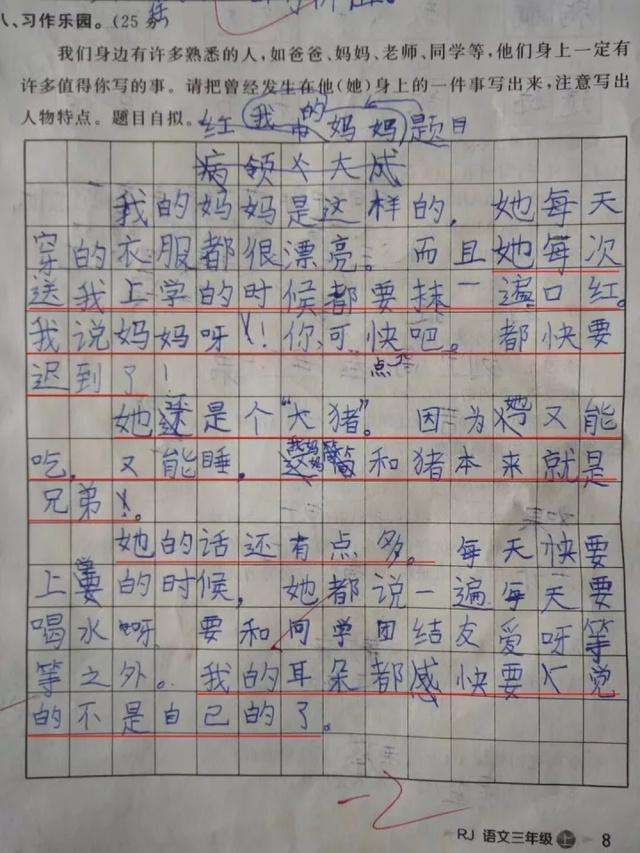 八、习作乐园。(25分)
我们身边有许多熟悉的人,如爸爸、妈妈、老师、同学等,他们身上一定有
许多值得你写的事。请把曾经发生在他(她)身上的一件事写出来,注意写出
人物特点。题目自拟。
红 我的妈妈 题目
病领 大成
我的妈妈是这样的,她每天
穿的衣服都很漂亮。而且她每次
送我上学的时候都要抹一遍口红。
我说妈妈呀!你可快吧。都快要
点
迟到了!
她还是个“大猪”。因为她又能
吃,又能睡。我妈妈简直和猪本来就是
兄弟。
她的话还有点多。每天快要
上学的时候,她都说一遍每天要
喝水呀要和同学团结友爱呀等
等之外。我的耳朵都感快要觉
的不是自己的了。
-2
RJ 语文三年级 上 8